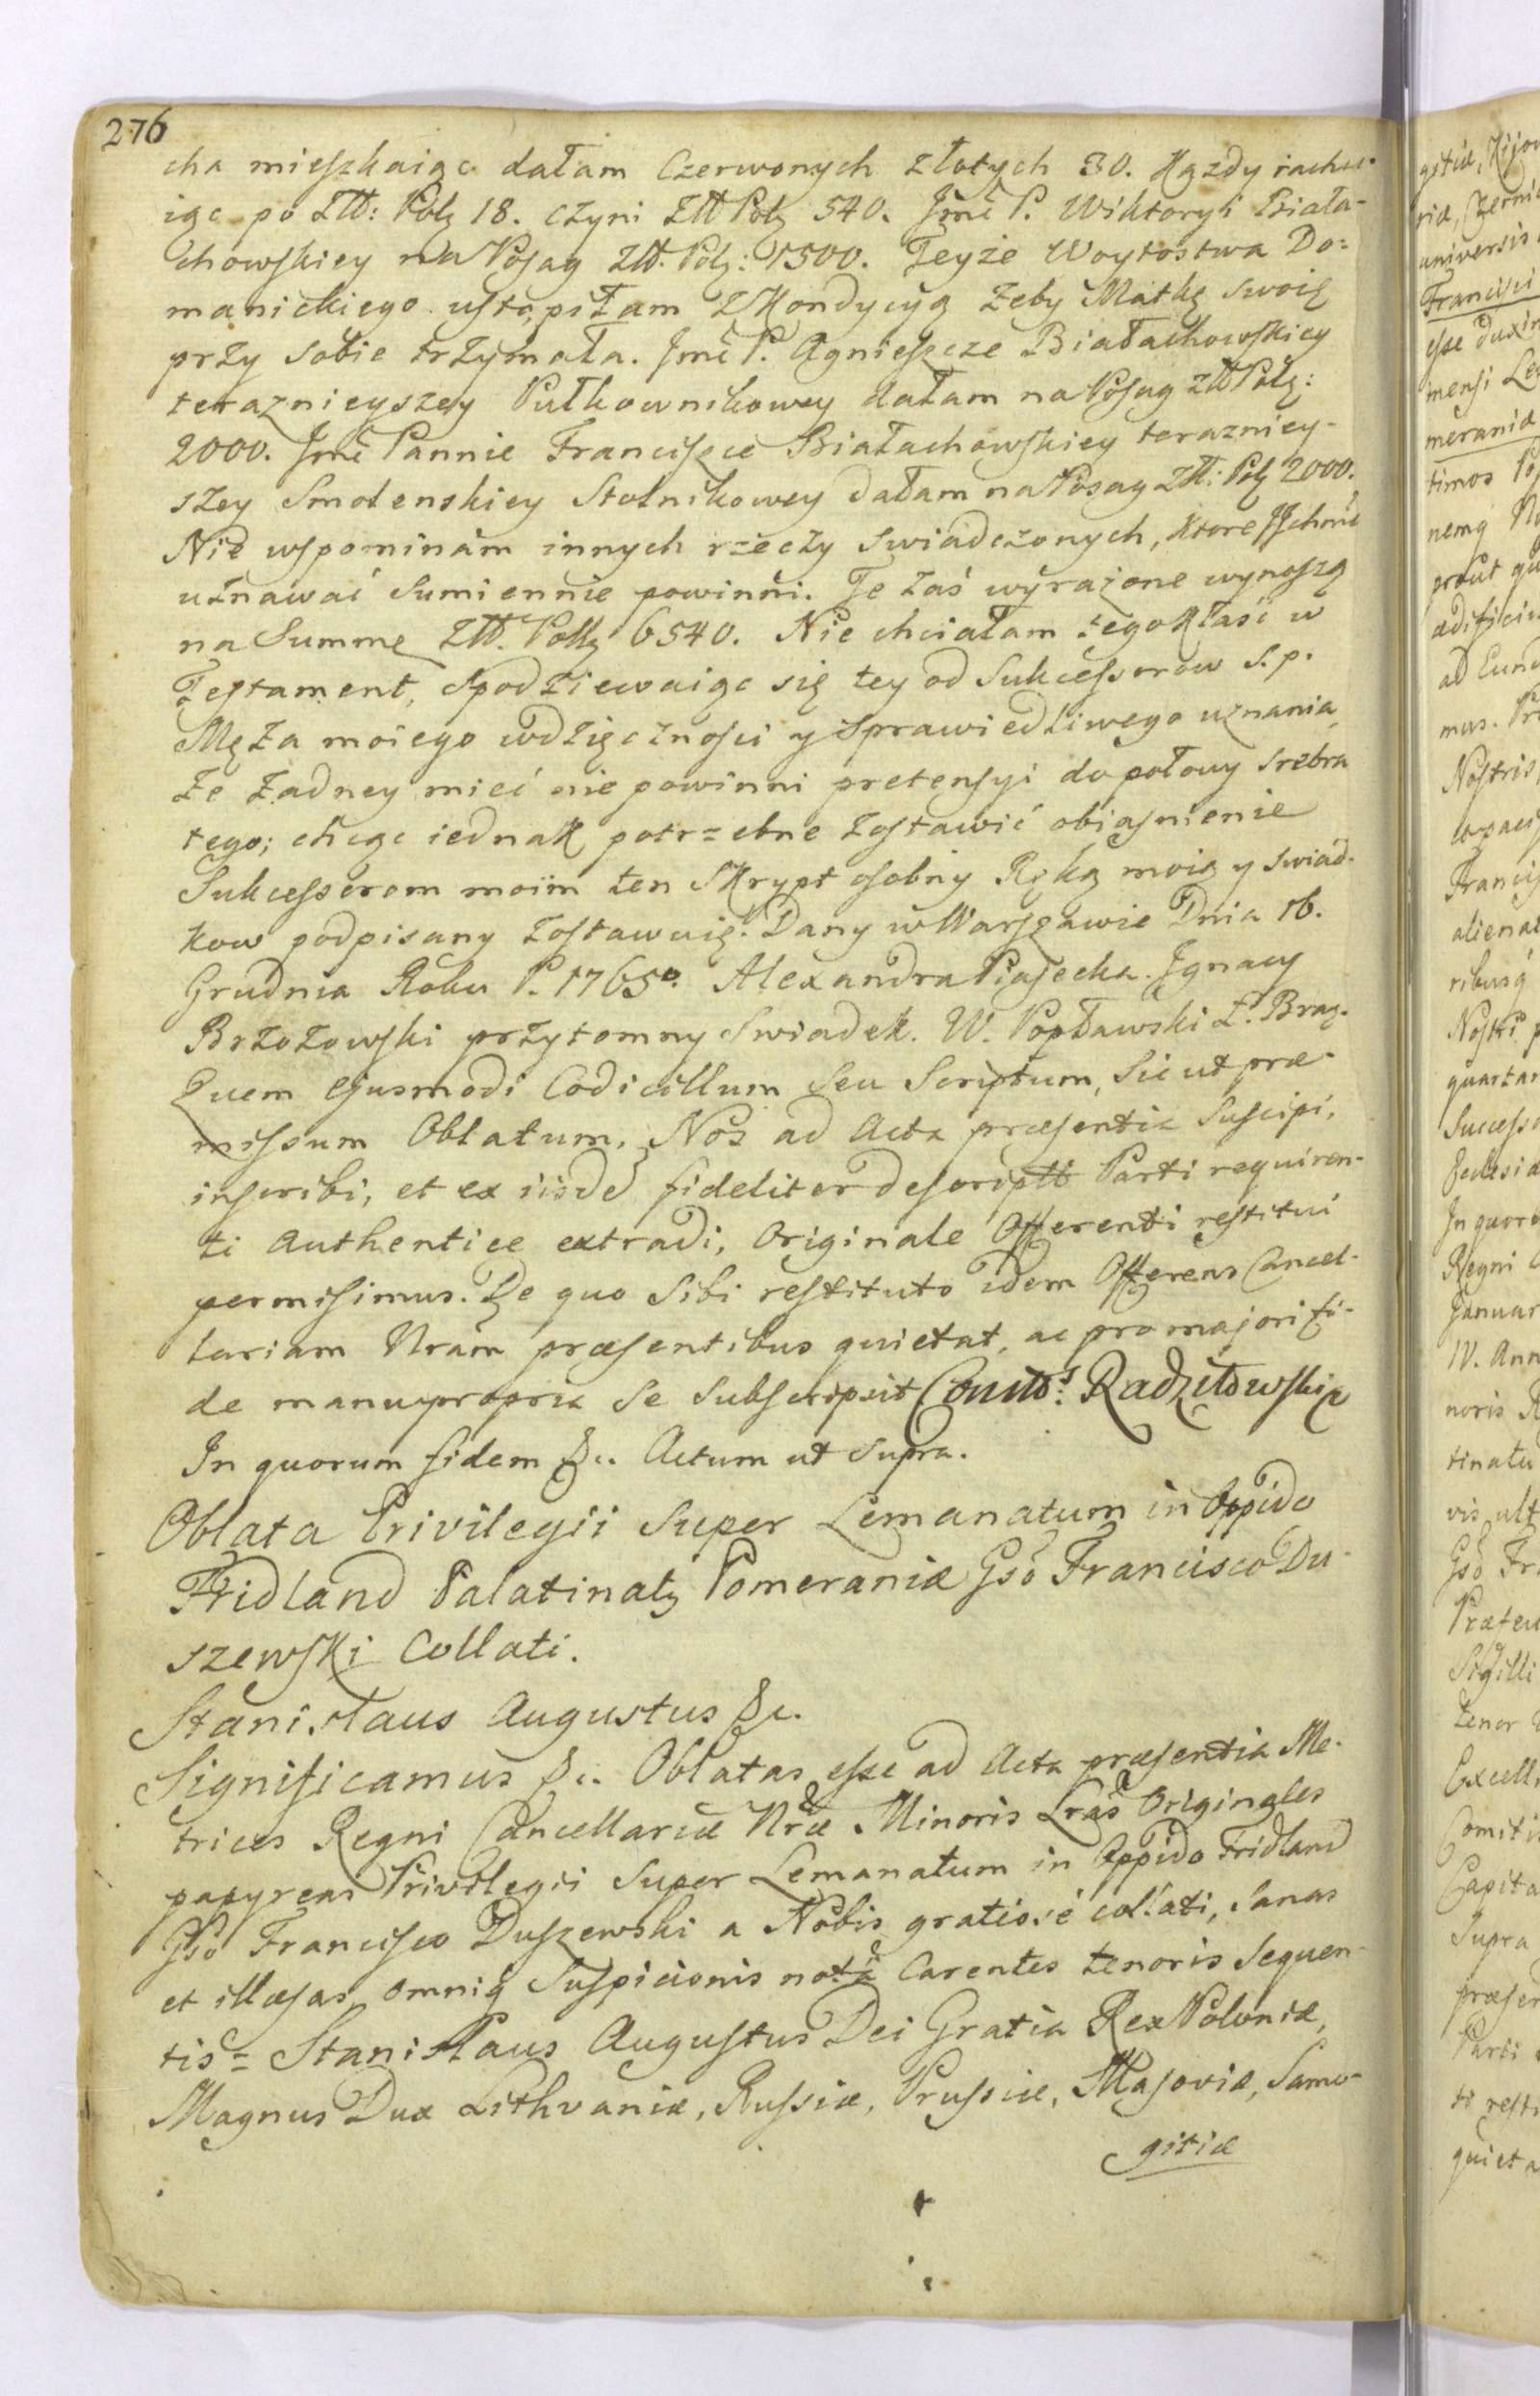 276
cha mieszkaiąc dałam Czerwonych złotych 30. Kazdy rachu-
iąc po Złł: Polę 18. czyni Złł Polę 540. Jmć P. Wiktoryi Biała-
chowskiey na Posag Złł. Polę: 1500. Teyże Woytostwa Do=
manickiego ustąpiłam z Kondycyą żeby Matkę swoię
przy sobie trzymała. Jmć P. Agnieszce Białachowskiey
teraznieyszey Pułkownikowey dałam na Posag Złł Polę:
2000. Jmć Pannie Franciszce Białachowskiey terazniey-
szey Smolenskiey Stolnikowey dałam na Posag Złł: Polę 2000.
Nie wspominam innych rzeczy swiadczonych, ktore JJchmć
uznawać sumiennie powinni. Te zaś wyrażone wynoszą
na Summę Złł. Polłę 6540. Nie chciałam tego kłaść w
Testament, spodziewaiąc się tey od Sukcessorow s. p.
Męża moiego wdzięczności y sprawiedliwego uznania,
że żadney mieć nie powinni pretensyi do połowy srebra
tego; chcąc iednak potrzebne zostawić obiasnienie
Sukcessorom moim ten Skrypt osobny Ręką moią y swiad-
kow podpisany zostawuię. Dany w Warszawie Dnia 16.
Grudnia Roku P. 1765o. Alexandra Piasecka. Jgnacy
Brzozowski przytomny Swiadek. W. Popławski Ł. Brac.
Quem ejusmodi Codicillum seu Scriptum, sic ut præ-
missum Oblatum, Nos ad Acta præsentia suscipi,
inscribi, et ex iisde fideliter descriptt Parti requiren-
ti Authentice extradi, Originale Offerenti restitui
permisimus. De quo sibi restituto idem Offerens Cancel-
lariam Nram præsentibus quietat, ac pro majori fi-
de manu propria se subscripsit Radziłowski
In quorum fidem &c. Actum ut supra.
Oblata Privilegii super Lemanatum in Oppido
Fridland Palatinatę Pomeraniæ Gso Francisco Du-
szewski Collati.
Stanislaus Augustus &c.
Significamus &c. Oblatas esse ad Acta præsentia Me-
trices Regni Cancellariæ Nræ Minoris Lras Originales
papyreas Privilegii super Lemanatum in Oppido Fridland
Gso Francisco Duszewski a Nobis gratiosé collati, sanas
et illæsas, omniq suspicionis nota carentes tenoris sequen-
tis= Stanislaus Augustus Dei Gratia Rex Poloniæ,
Magnus Dux Lithvaniæ, Russiæ, Prussiæ, Masoviæ, Samo-
gitiæ
gitiæ, Kijov
riæ, Czerni
universis
Francisci
esse duxim
mensi Le
meraniæ
timos
nemq
prout
ædificiis
ad Eund
mus.
Nostris
Francis
alienat
ribusq
Nostri p
quartar
Successo
Ecclesiæ
In quor
Regni
Januar
IV. Ann
noris R
tinatu
vis ult
Gso Fr
Sigilli
tenor
Excell
Comiti
Capita
Supra
præsen
Parti
ti resti
quieta